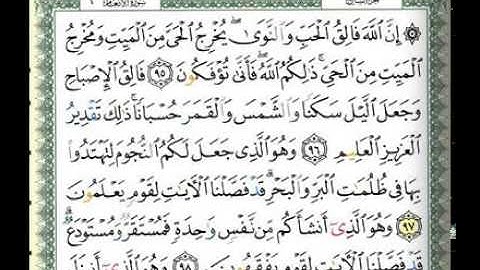 سورة الأنعام
إِنَّ اللَّهَ فَالِقُ الْحَبِّ وَالنَّوَىٰ ۖ يُخْرِجُ الْحَيَّ مِنَ الْمَيِّتِ وَمُخْرِجُ
الْمَيِّتِ مِنَ الْحَيِّ ۚ ذَٰلِكُمُ اللَّهُ ۖ فَأَنَّىٰ تُؤْفَكُونَ ٩٥ فَالِقُ الْإِصْبَاحِ
وَجَعَلَ اللَّيْلَ سَكَنًا وَالشَّمْسَ وَالْقَمَرَ حُسْبَانًا ۚ ذَٰلِكَ تَقْدِيرُ
الْعَزِيزِ الْعَلِيمِ ٩٦ وَهُوَ الَّذِي جَعَلَ لَكُمُ النُّجُومَ لِتَهْتَدُوا
بِهَا فِي ظُلُمَاتِ الْبَرِّ وَالْبَحْرِ ۗ قَدْ فَصَّلْنَا الْآيَاتِ لِقَوْمٍ يَعْلَمُونَ
٩٧ وَهُوَ الَّذِي أَنْشَأَكُمْ مِنْ نَفْسٍ وَاحِدَةٍ فَمُسْتَقَرٌّ وَمُسْتَوْدَعٌ ۗ
قَدْ فَصَّلْنَا الْآيَاتِ لِقَوْمٍ يَفْقَهُونَ ٩٨ وَهُوَ الَّذِي أَنْزَلَ